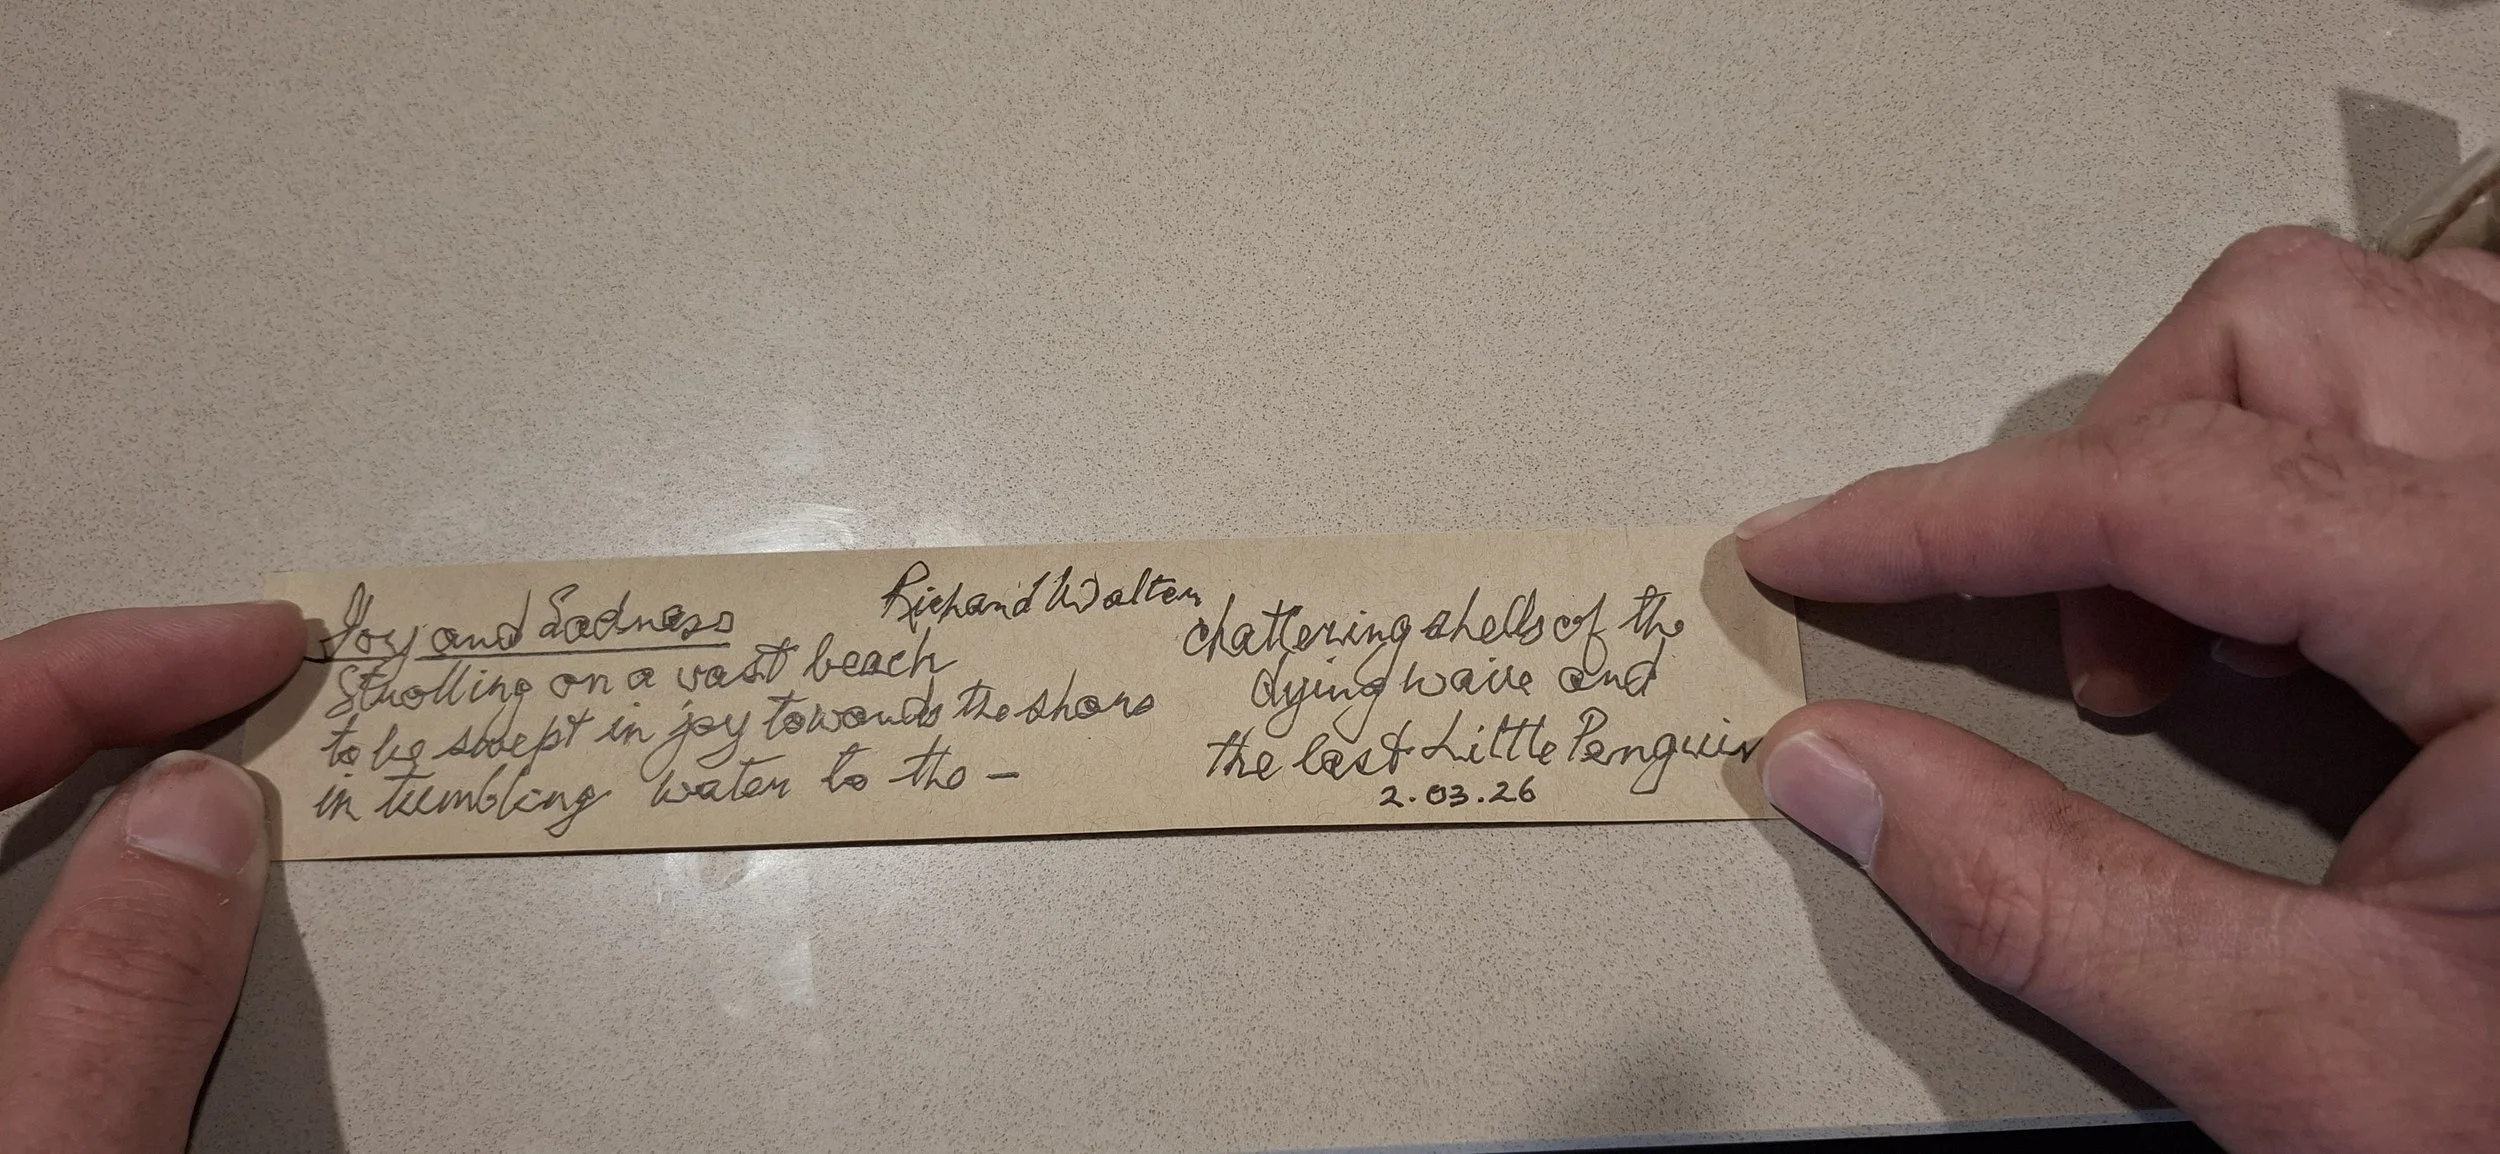 Joy and Sadness
Richard Walter
Strolling on a vast beach
to be swept in joy towards the shore
in tumbling water to the -
chattering shells of the
dying wave and
the last Little Penguin
2.03.26